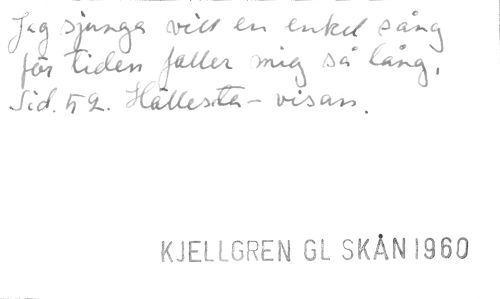 Jag sjunga vill en enkel sång
för tiden faller mig så lång,
Sid. 52. Hällesta-visan.
KJELLGREN GL SKÅN 1960